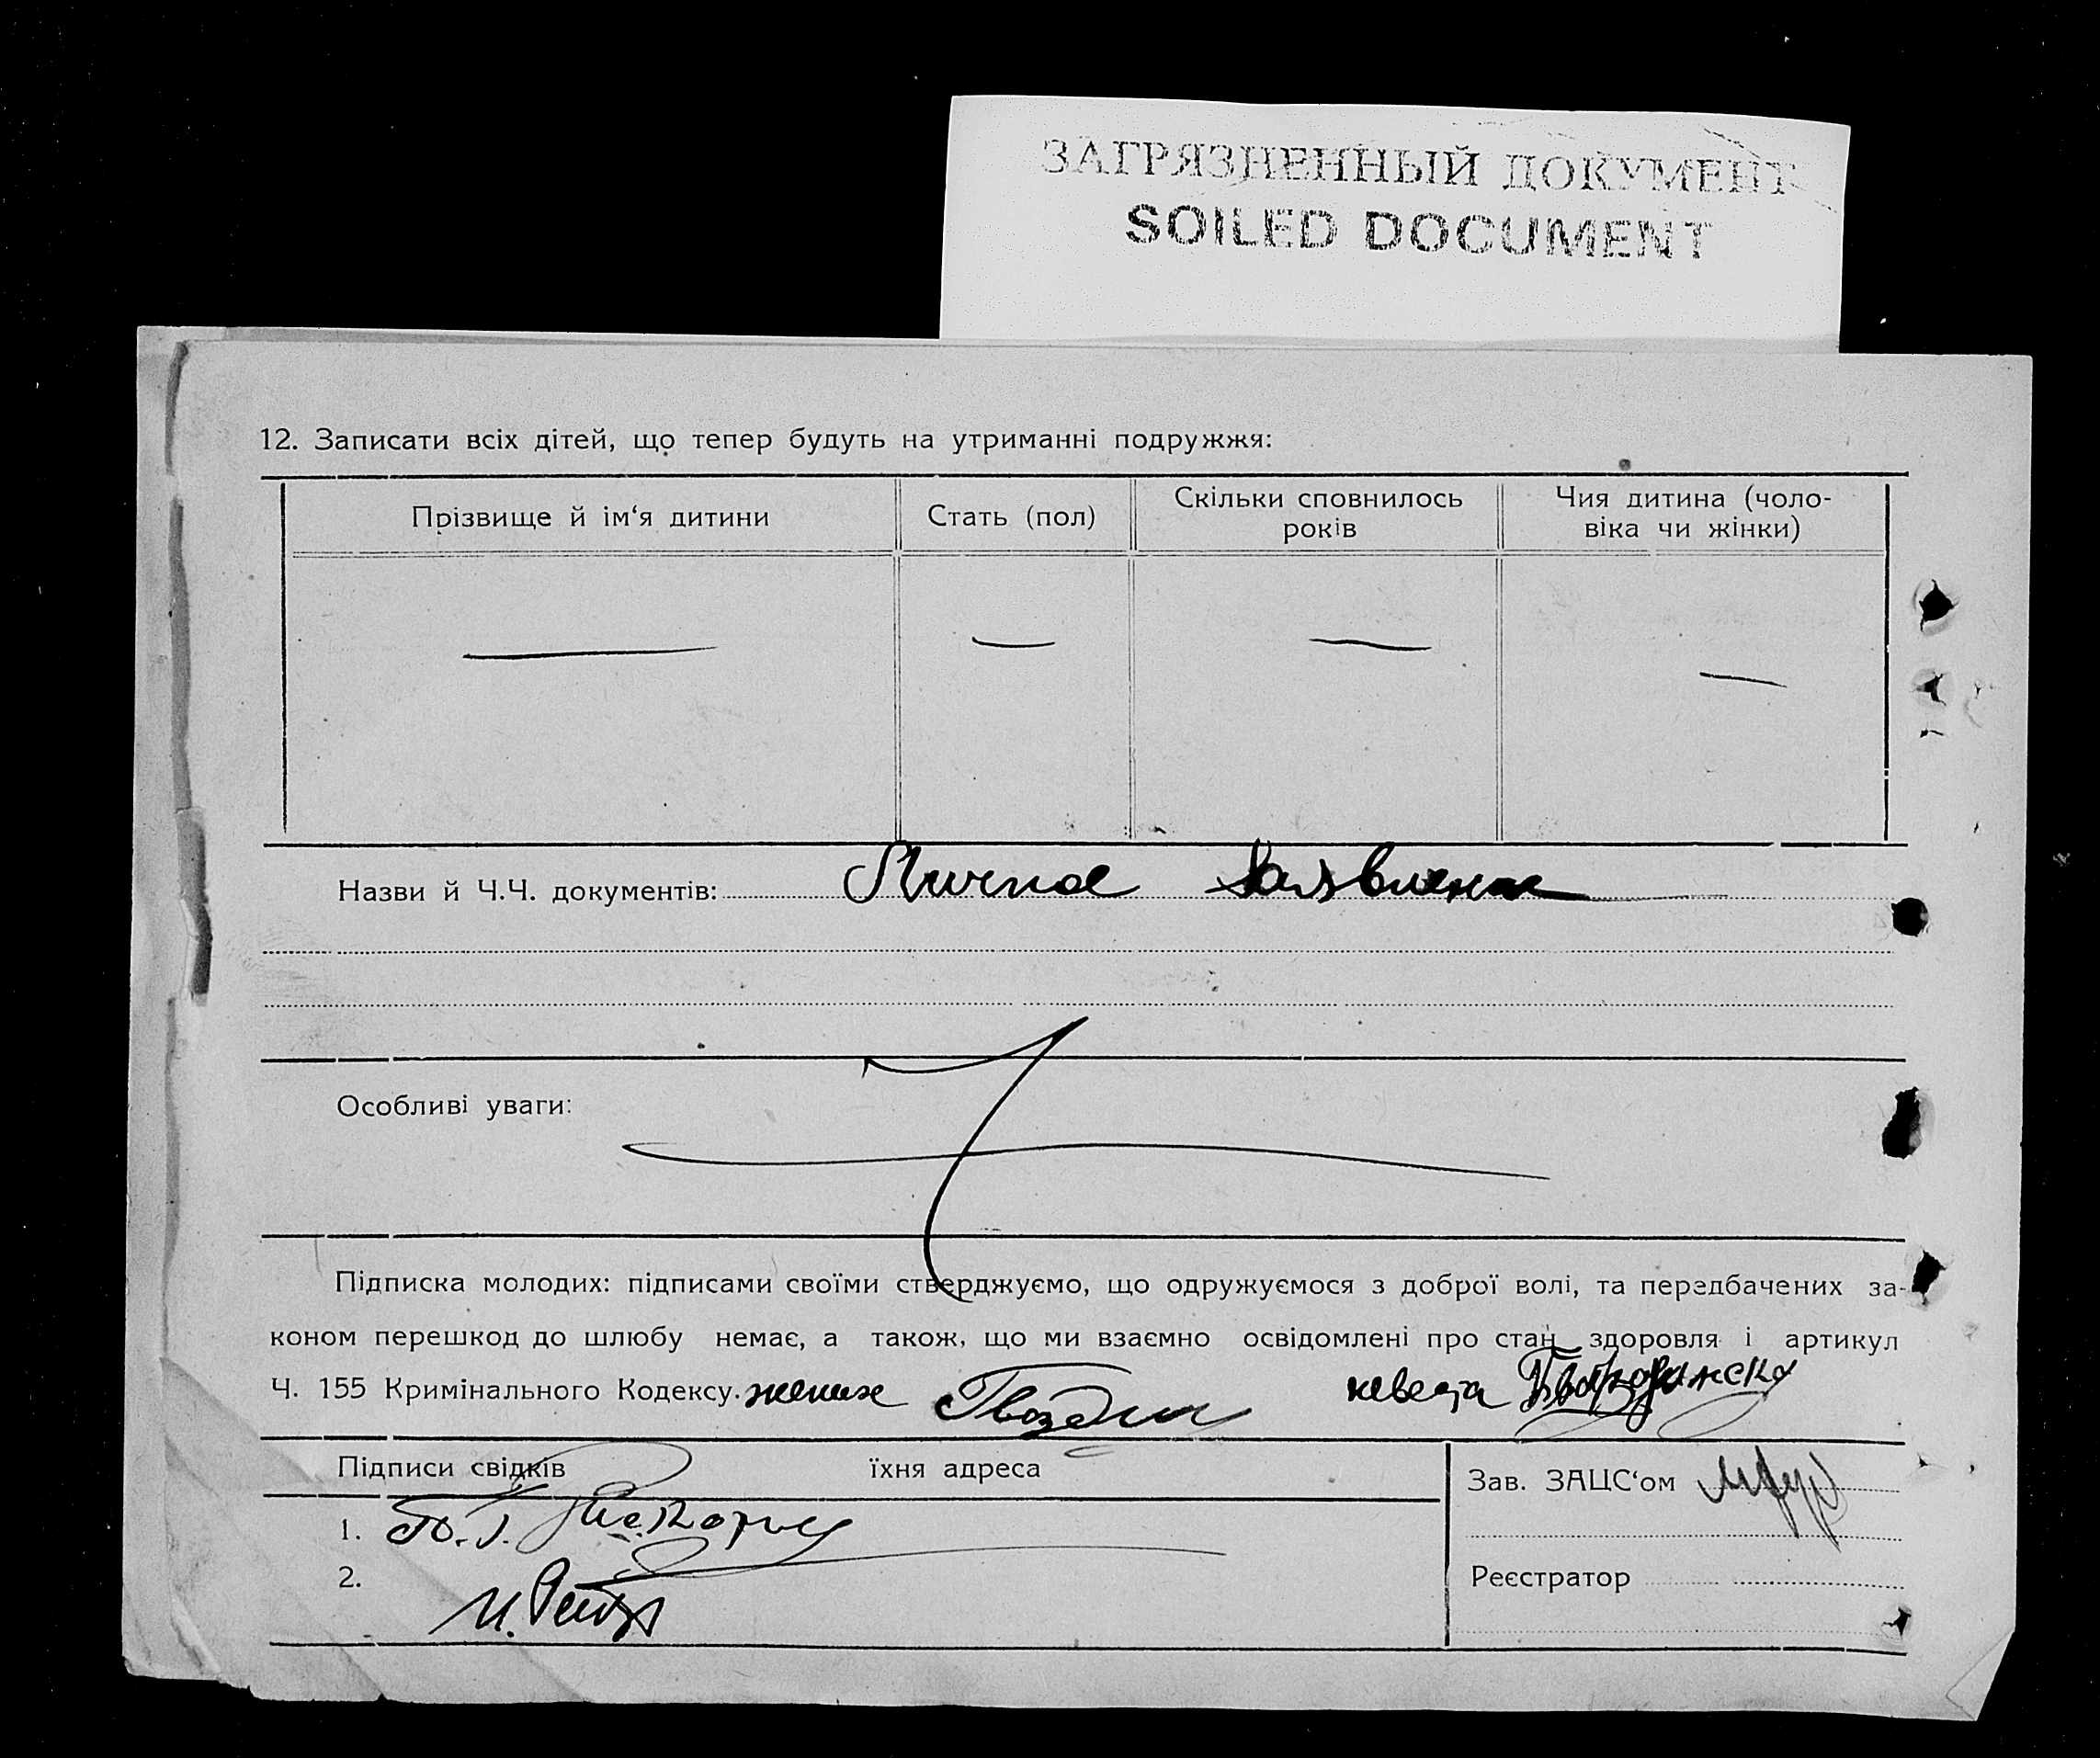 ЗАГРЯЗНЕННЫЙ ДОКУМЕНТ
SOILED DOCUMENT
12. Записати всіх дітей, що тепер будуть на утриманні подружжя:
Прізвище й ім‘я дитини
Стать (пол)
Скільки сповнилось
років
Чия дитина (чоло-
віка чи жінки)
Назви й Ч.Ч. документів: Личное
Особливі уваги:
Підписка молодих: підписами своїми стверджуємо, що одружуємося з доброї волі, та передбачених за-
коном перешкод до шлюбу немає, а також, що ми взаємно освідомлені про стан здоровля і артикул
Ч. 155 Кримінального Кодексу. жених невеста
Підписи свідків їхня адреса
Зав. ЗАЦС‘ом
1.
2.
Реєстратор